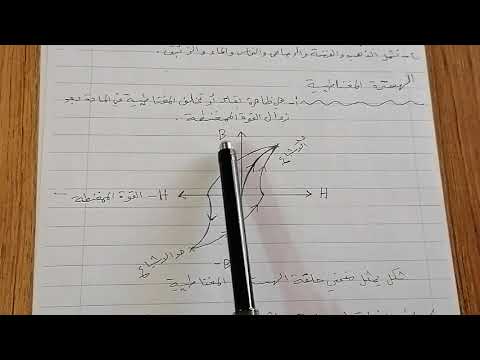 ٢- تشمل الذهب والفضة والرصاص والنحاس والماء والزئبق .
الهسترة المغناطيسية
١- هي ظاهرة تقاعد أو تخلف المغناطيسية في المادة بعد
زوال القوة الممغنطة .
B
حد الاشباع
القوة الممغنطة
-H
H
حد الاشباع
-B
شكل يمثل منحني حلقة الهسترة المغناطيسية